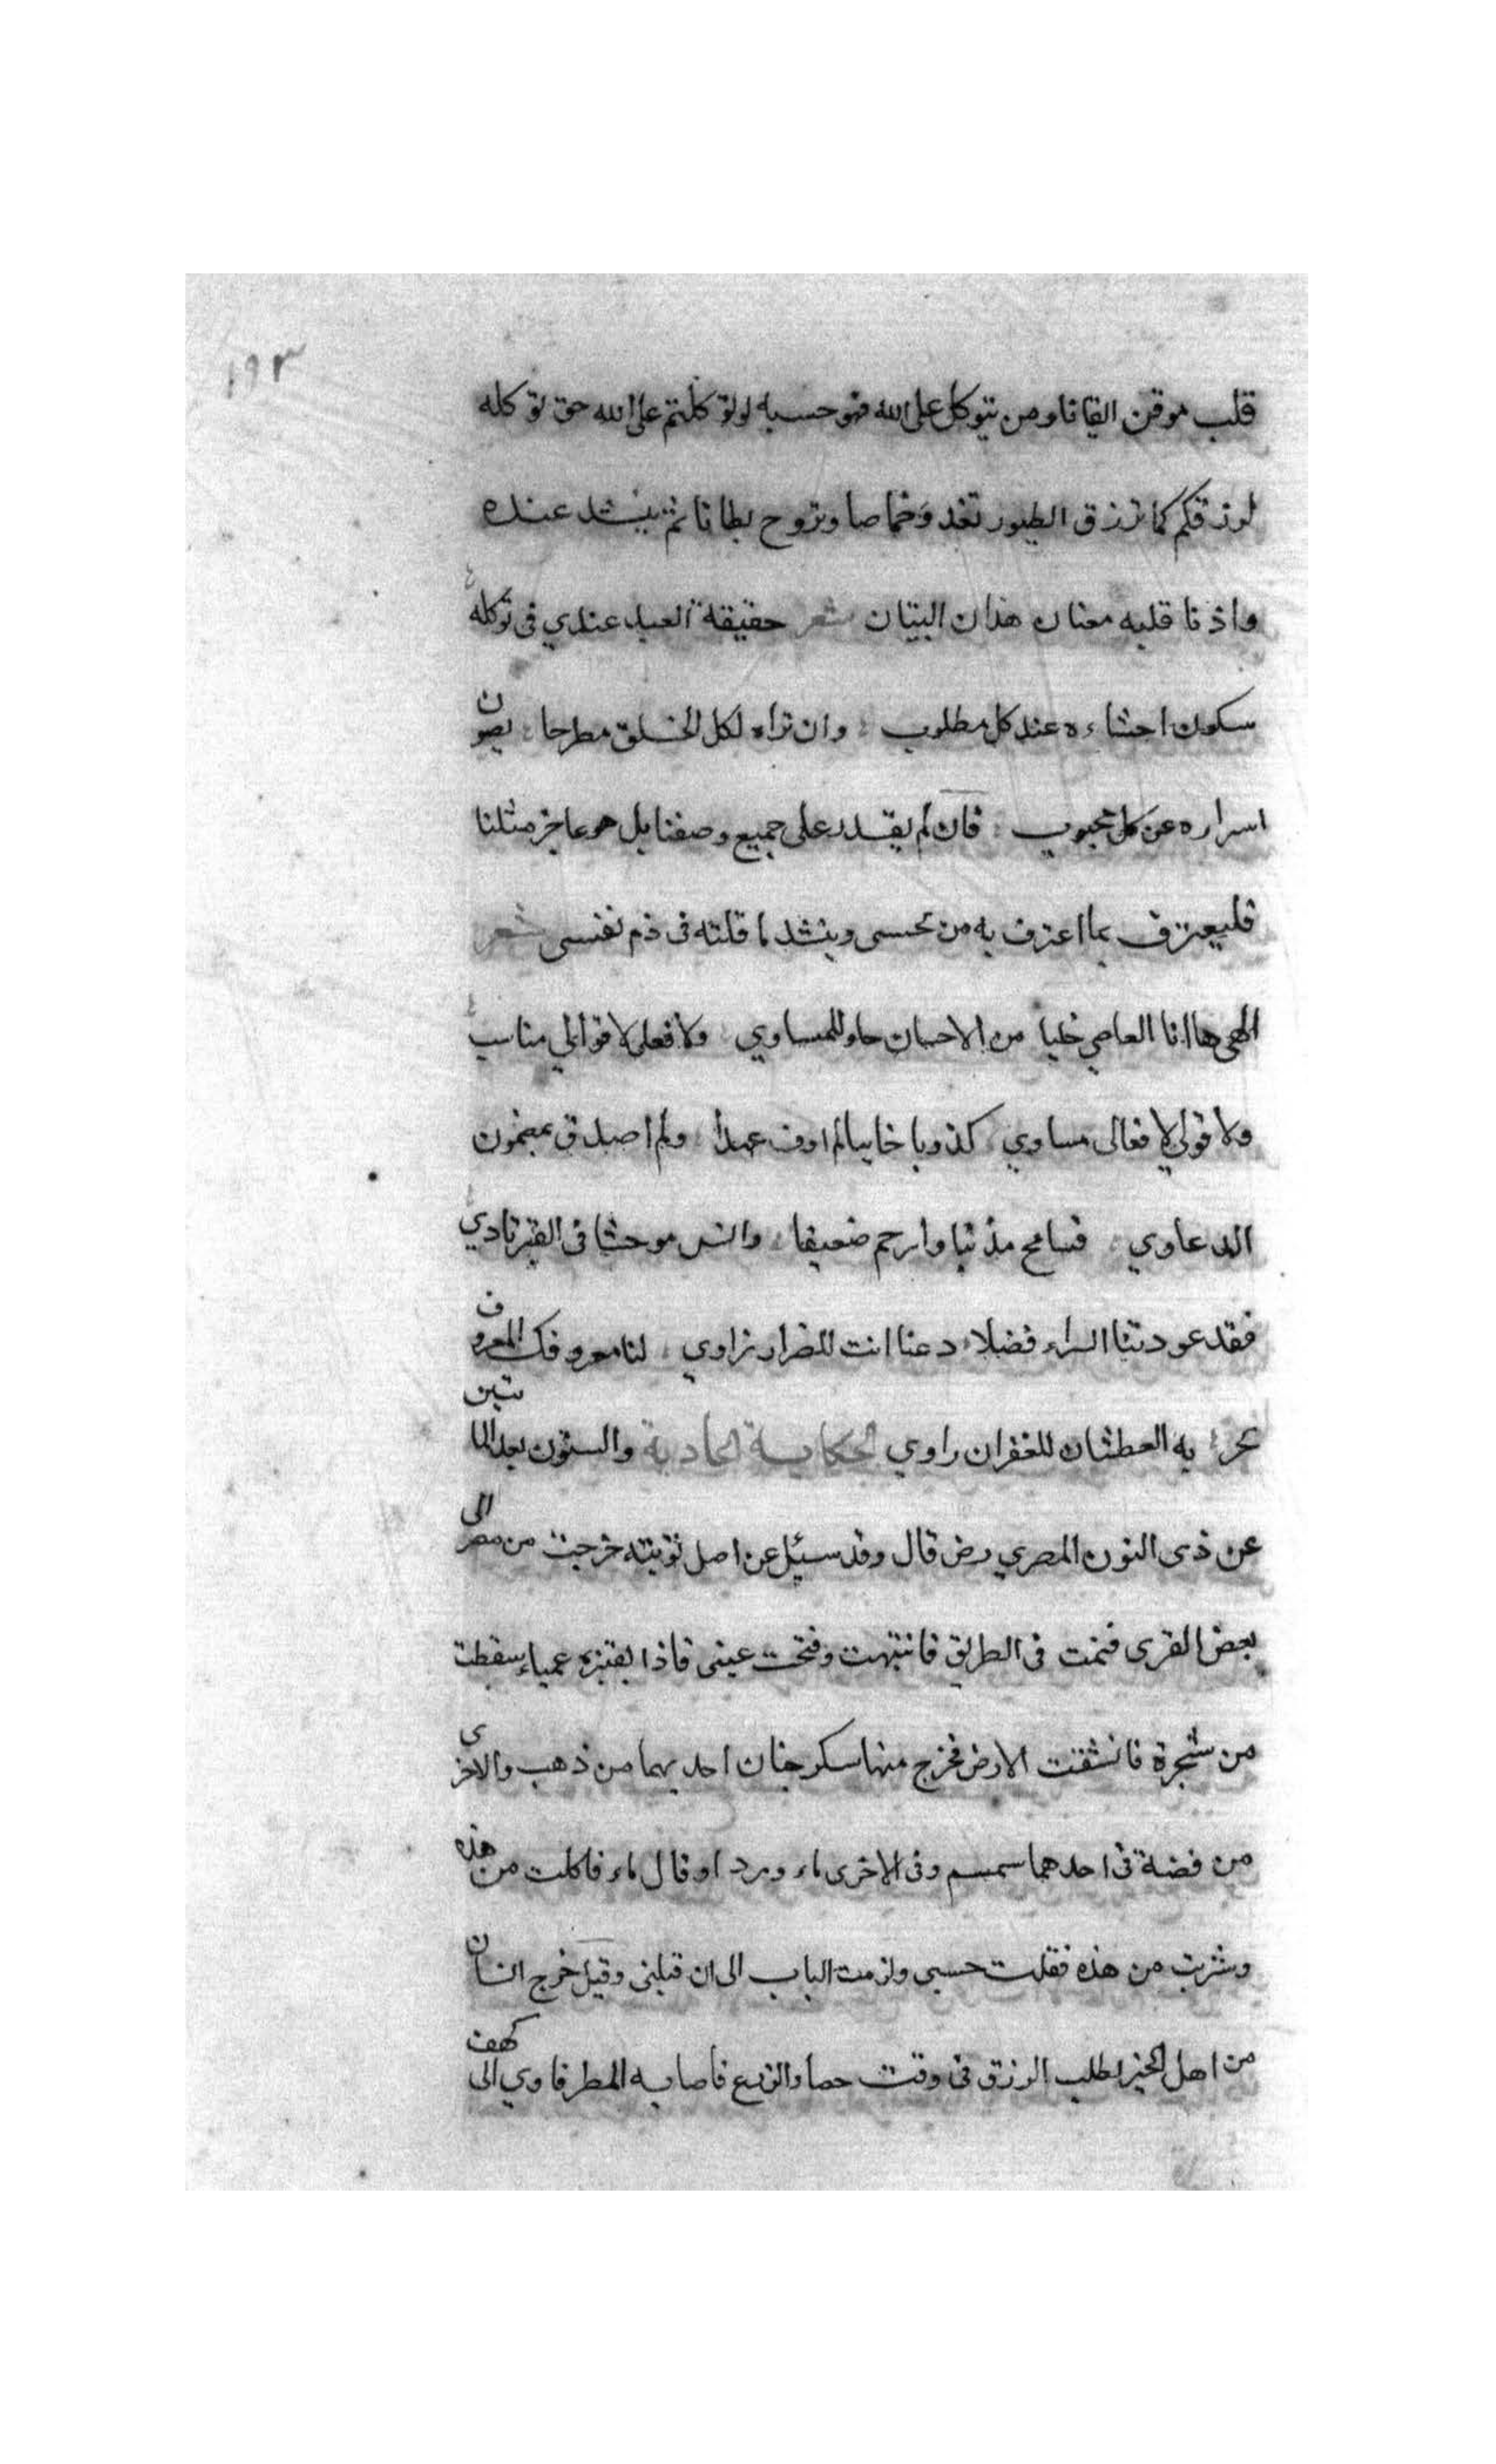 ١٩٣
قلب موقن ايقانا ومن يتوكل على الله فهو حسبه لو توكلتم على الله حق توكله
لرزقكم كما ترزق الطيور تغدو خماصا وتروح بطانا ثم ينشد عنده
واذنا قلبه معناه هذان البيتان شعر حقيقة العبد عندي في توكله
سكون احشاءه عند كل مطلوب وان تراه لكل الخلق مطرحا يصون
اسراره عن كل محبوب فان لم يقدر على جميع وصفنا بل هو عاجز مثلنا
فليعترف بما اعترف به من نحسى وينشد ما قلته في ذم نفسى شعر
الهى ها انا العاصي خليا من الاحسان حاو للمساوي ولا فعلى لاقوالي مناسب
ولا قولى لافعالى مساوي كذوبا خايبا لم اوف عهدا ولم اصدق بمضمون
الدعاوي فسامح مذنبا وارحم ضعيفا وانس موحشا في القبر ثاوي
فقد عودتنا السراء فضلا دعنا انت للضرار زاوي لنا معروفك المعروف
بحرا به العطشان للغفران راوي الحكاية الحادية والستون بعد المائتين
عن ذى النون المصري رض قال وقد سئيل عن اصل توبته خرجت من مصر الى
بعض القرى فنمت في الطريق فانتبهت وفتحت عينى فاذا بقنبرة عمياء سقطت
من شجرة فانشقت الارض فخرج منها سكرجتان احديهما من ذهب والاخرى
من فضة في احدهما سمسم وفى الاخرى ماء ورد او قال ماء فاكلت من هذه
وشربت من هذه فقلت حسبى ولزمت الباب الى ان قبلنى وقيل خرج انسان
من اهل الخير لطلب الرزق في وقت حصاد الزرع فاصابه المطر فاوي الى كهف